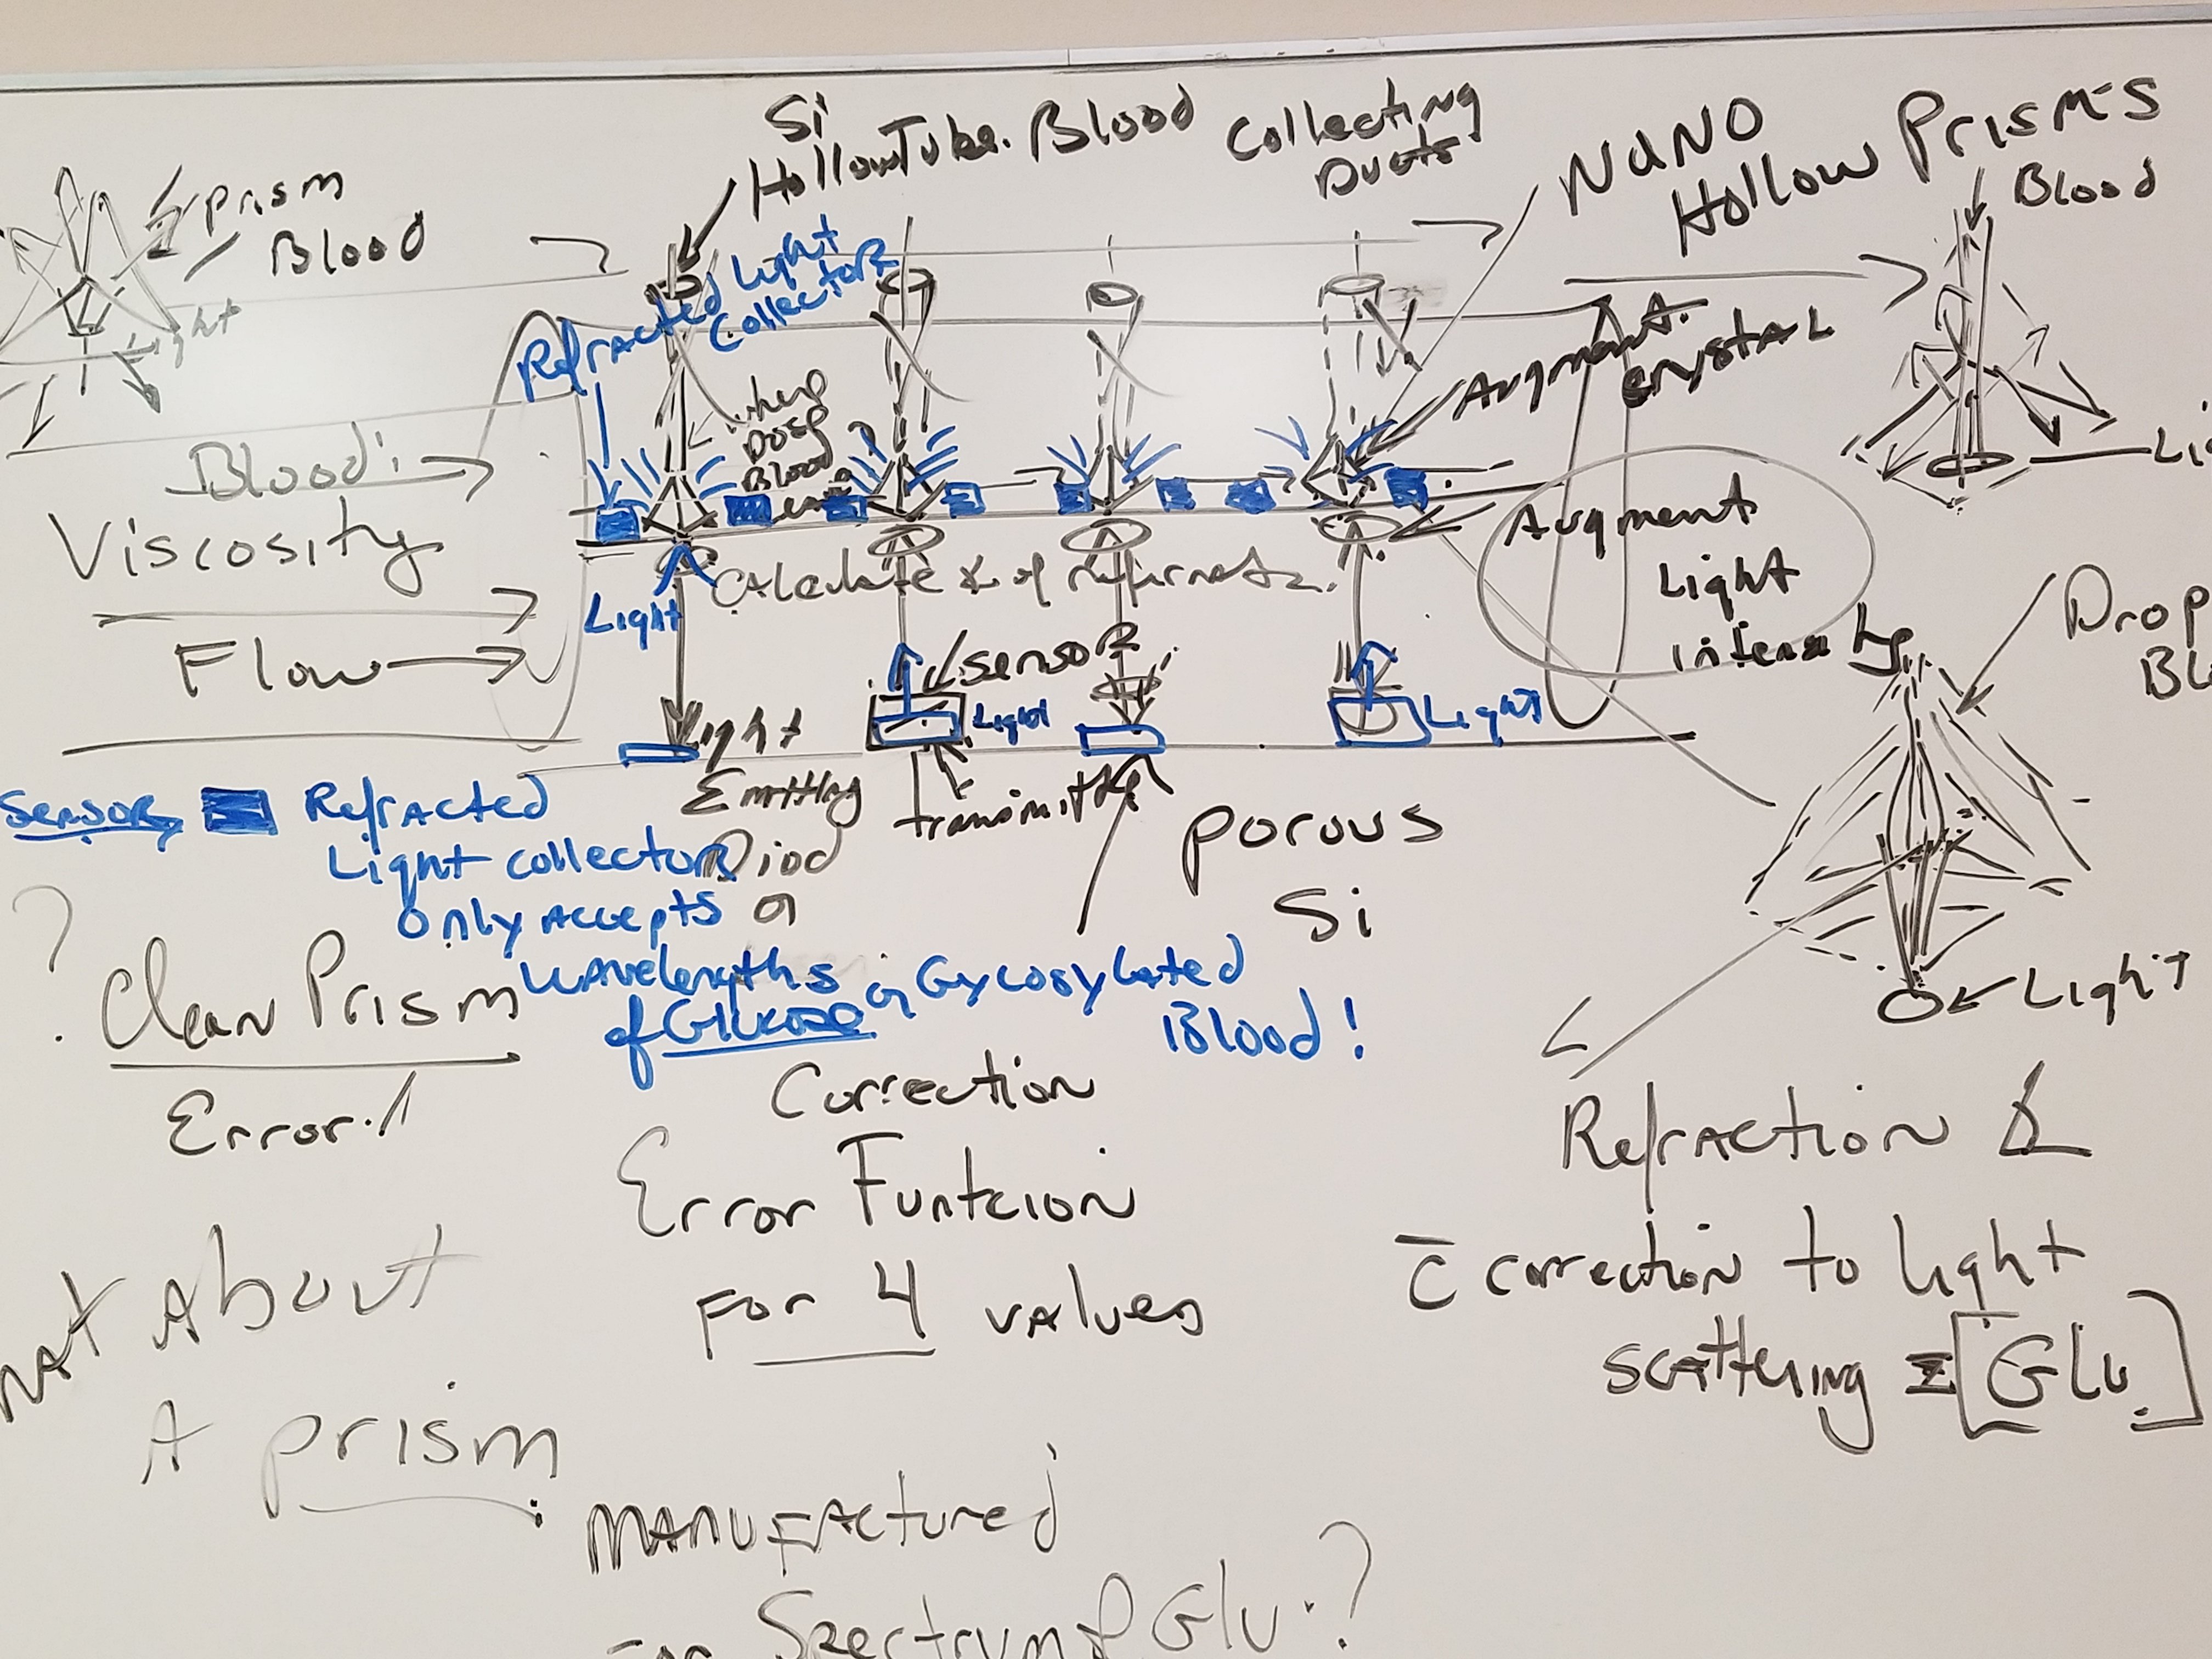 Si
Hollow Tube. Blood Collecting
Ducts
NANO
Hollow Prisms
Blood
Prism
Blood
Light
Refracted Light
Collector
Augment.
crystal
where
Does
Blood
Blood:
Viscosity
Flow
Calculate
Light
sensor
Light
Light
Augment
Light
intensity
Drop
Light
Emitting
Diod
transmitter
Porous
Si
Sensor
Refracted
Light collector
only Accepts
wavelengths
of Glucose or Gycosylated
Blood!
?
Clean Prism
Error.
Correction
Error Funtcion
For 4 values
Light
Refraction &
c̄ correction to light
scattering = [Glu.]
About
A prism
Manufactured
Spectrum of Glu.?